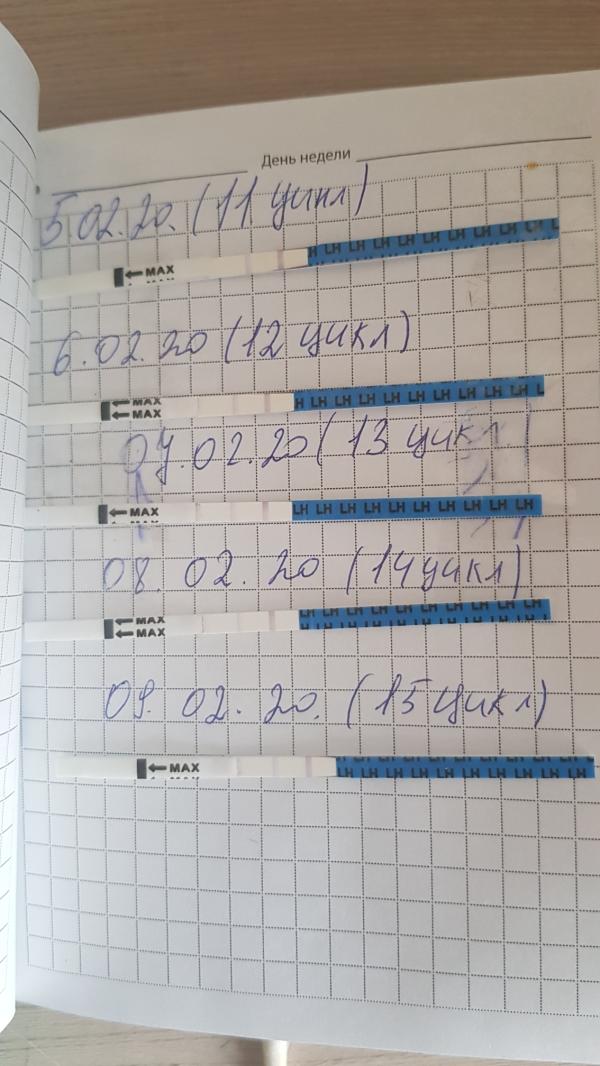 День недели
5.02.20. (11 цикл)
LH LH LH LH LH LH LH LH LH
MAX
6.02.20 (12 цикл)
MAX
MAX
LH LH LH LH LH LH LH LH LH
07.02.20 (13 цикл)
MAX
LH LH LH LH LH LH LH LH LH
08. 02. 20 (14 цикл)
MAX
MAX
LH LH LH LH LH LH LH LH LH
09. 02. 20. (15 цикл)
MAX
LH LH LH LH LH LH LH LH LH